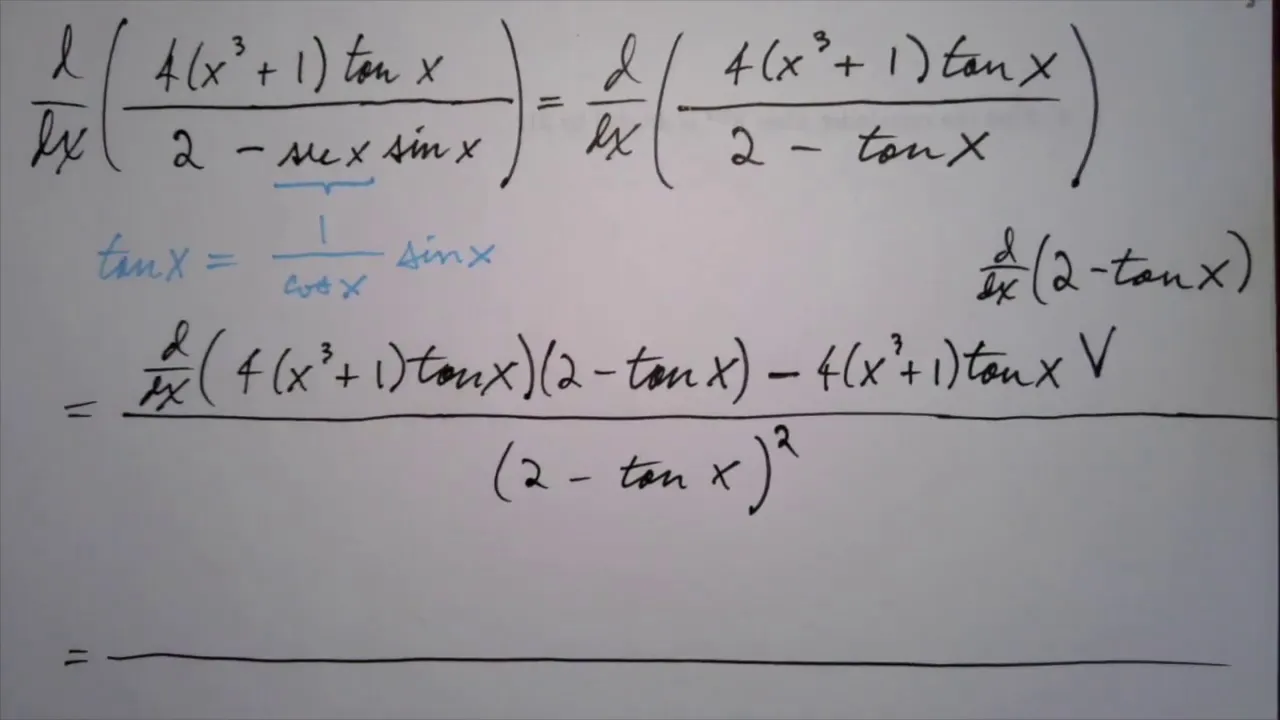 d/dx ( 4(x³ + 1) tan x / 2 - sec x sin x ) = d/dx ( 4(x³ + 1) tan x / 2 - tan x )
tan x = 1/cos x sin x
d/dx (2 - tan x)
= d/dx ( 4(x³ + 1) tan x)(2 - tan x) - 4(x³ + 1) tan x V / (2 - tan x)²
=